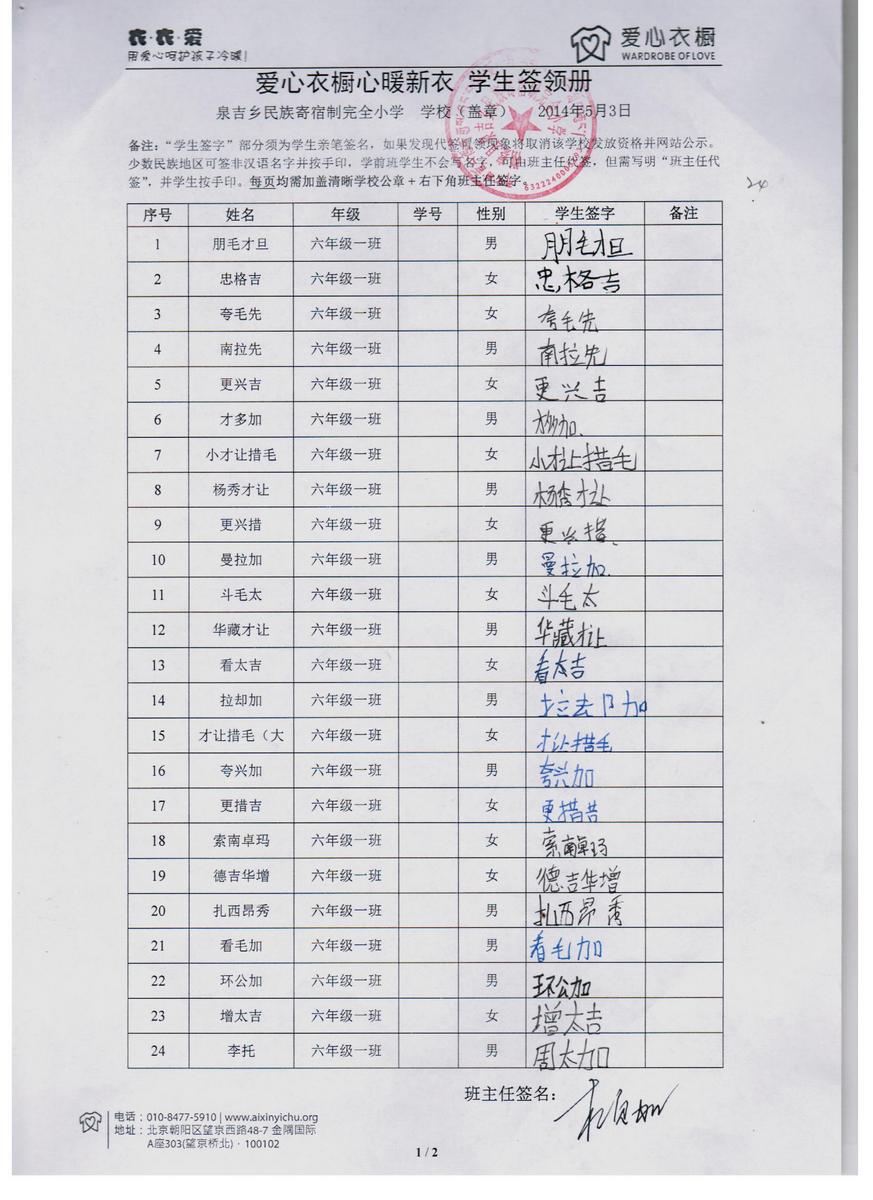 衣·衣·爱
用爱心呵护孩子冷暖!
爱心衣橱
WARDROBE OF LOVE
爱心衣橱心暖新衣 学生签领册
泉吉乡民族寄宿制完全小学 学校（盖章） 2014年5月3日
备注：“学生签字”部分须为学生亲笔签名，如果发现代签冒领现象将取消该学校发放资格并网站公示。
少数民族地区可签非汉语名字并按手印，学前班学生不会写名字，可由班主任代签，但需写明“班主任代
签”，并学生按手印。每页均需加盖清晰学校公章+右下角班主任签字。
24
序号 姓名 年级 学号 性别 学生签字 备注
1 朋毛才旦 六年级一班 男 朋毛才旦
2 忠格吉 六年级一班 女 忠格吉
3 夸毛先 六年级一班 女 夸毛先
4 南拉先 六年级一班 男 南拉先
5 更兴吉 六年级一班 女 更兴吉
6 才多加 六年级一班 男 才多加.
7 小才让措毛 六年级一班 女 小才让措毛
8 杨秀才让 六年级一班 男 杨秀才让
9 更兴措 六年级一班 女 更兴措.
10 曼拉加 六年级一班 男 曼拉加.
11 斗毛太 六年级一班 女 斗毛太
12 华藏才让 六年级一班 男 华藏才让
13 看太吉 六年级一班 女 看太吉
14 拉却加 六年级一班 男 拉却加
15 才让措毛（大 六年级一班 女 才让措毛
16 夸兴加 六年级一班 男 夸兴加
17 更措吉 六年级一班 女 更措吉
18 索南卓玛 六年级一班 女 索南卓玛
19 德吉华增 六年级一班 女 德吉华增
20 扎西昂秀 六年级一班 男 扎西昂秀
21 看毛加 六年级一班 男 看毛加
22 环公加 六年级一班 男 环公加
23 增太吉 六年级一班 女 增太吉
24 李托 六年级一班 男 周太加
班主任签名：
电话：010-8477-5910 | www.aixinyichu.org
地址：北京朝阳区望京西路48-7 金隅国际
A座303(望京桥北)·100102
1 / 2